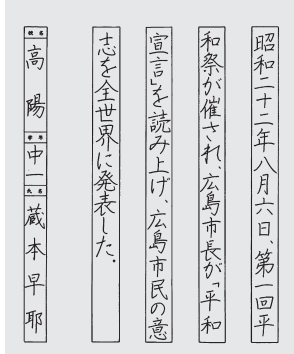 昭和二十二年八月六日、第一回平
和祭が催され、広島市長が「平和
宣言」を読み上げ、広島市民の意
志を全世界に発表した。
校名 高陽 学年 中一 氏名 蔵本早耶